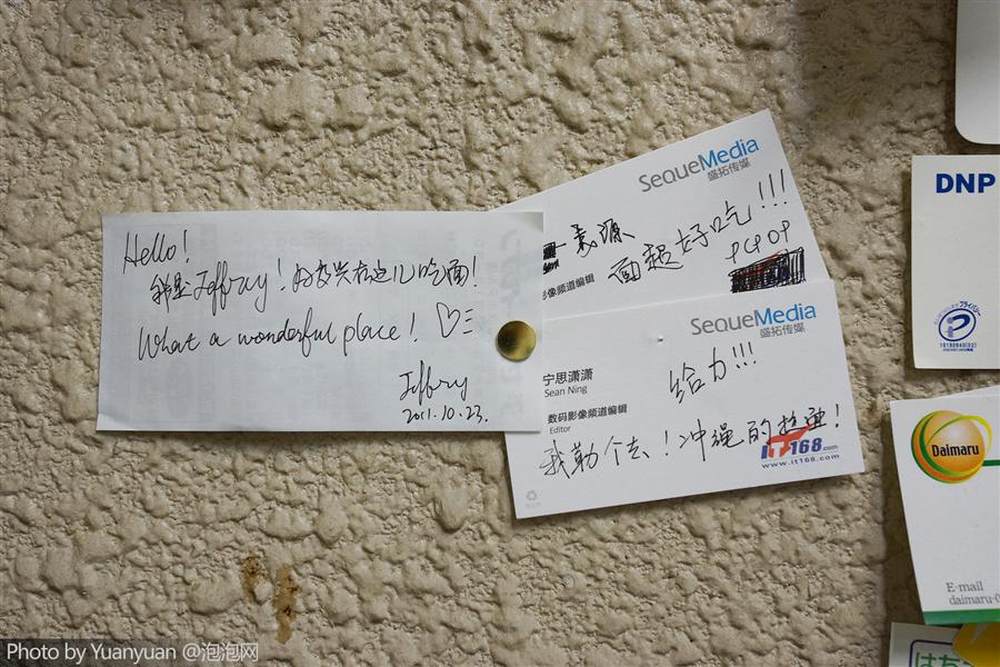 Hello!
我是Jeffray!好高兴在这儿吃面!
What a wonderful place!
Jeffry
2011.10.23.
SequeMedia
盛拓传媒
袁源
面超好吃!!!
PCPOP
影像频道编辑
SequeMedia
盛拓传媒
宁思潇潇
Sean Ning
给力!!!
数码影像频道编辑
Editor
我勒个去!冲绳的拉面!
IT168.com
www.it168.com
DNP
プライバシー
Daimaru
E-mail
daimaru-0
はち
Photo by Yuanyuan @泡泡网